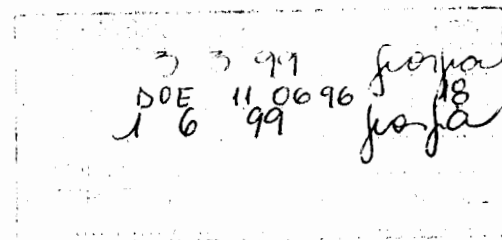 3 3 99
DOE 11 06 96 18
1 6 99